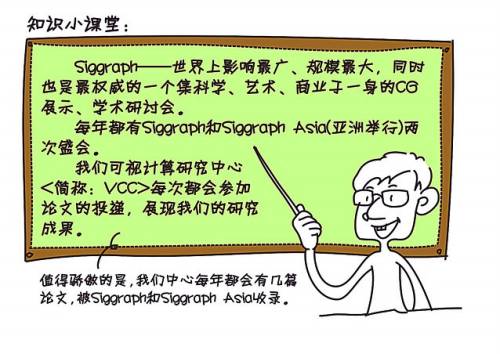 知识小课堂：
Siggraph——世界上影响最广、规模最大，同时
也是最权威的一个集科学、艺术、商业于一身的CG
展示、学术研讨会。
每年都有Siggraph和Siggraph Asia(亚洲举行)两
次盛会。
我们可视计算研究中心
<简称：VCC>每次都会参加
论文的投递，展现我们的研究
成果。
值得骄傲的是，我们中心每年都会有几篇
论文，被Siggraph和Siggraph Asia收录。